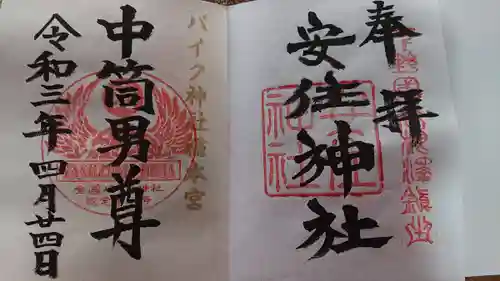 奉拝
安住神社
バイク神社総本宮
中筒男尊
令和三年 四月廿四日